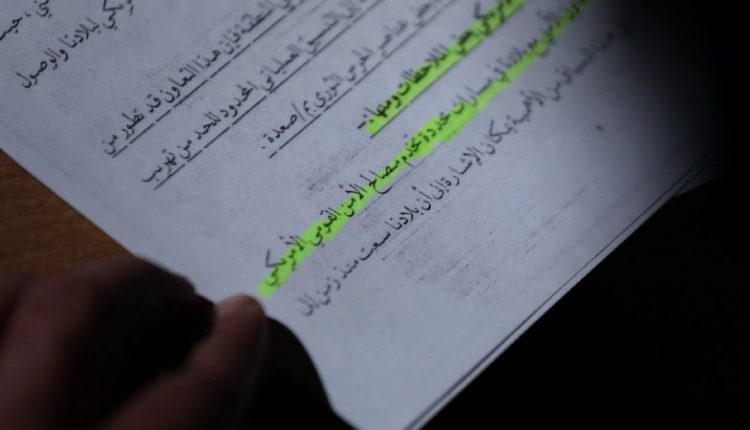 ني، حيث
ريكي لبلادنا والوصول
المنطقة فإن هذا التعاون قد تطور من
التنسيق العملياتي المحدود للحد من تهريب
بعض عناصر الحرس الثوري بم/صعدة.
بعض الملاحظات ومنها:
بلادنا في مسارات محددة تخدم مصالح الأمن القومي الأمريكي
هذا السياق من الأهمية بمكان الإشارة إلى أن بلادنا سعت منذ زمن إلى